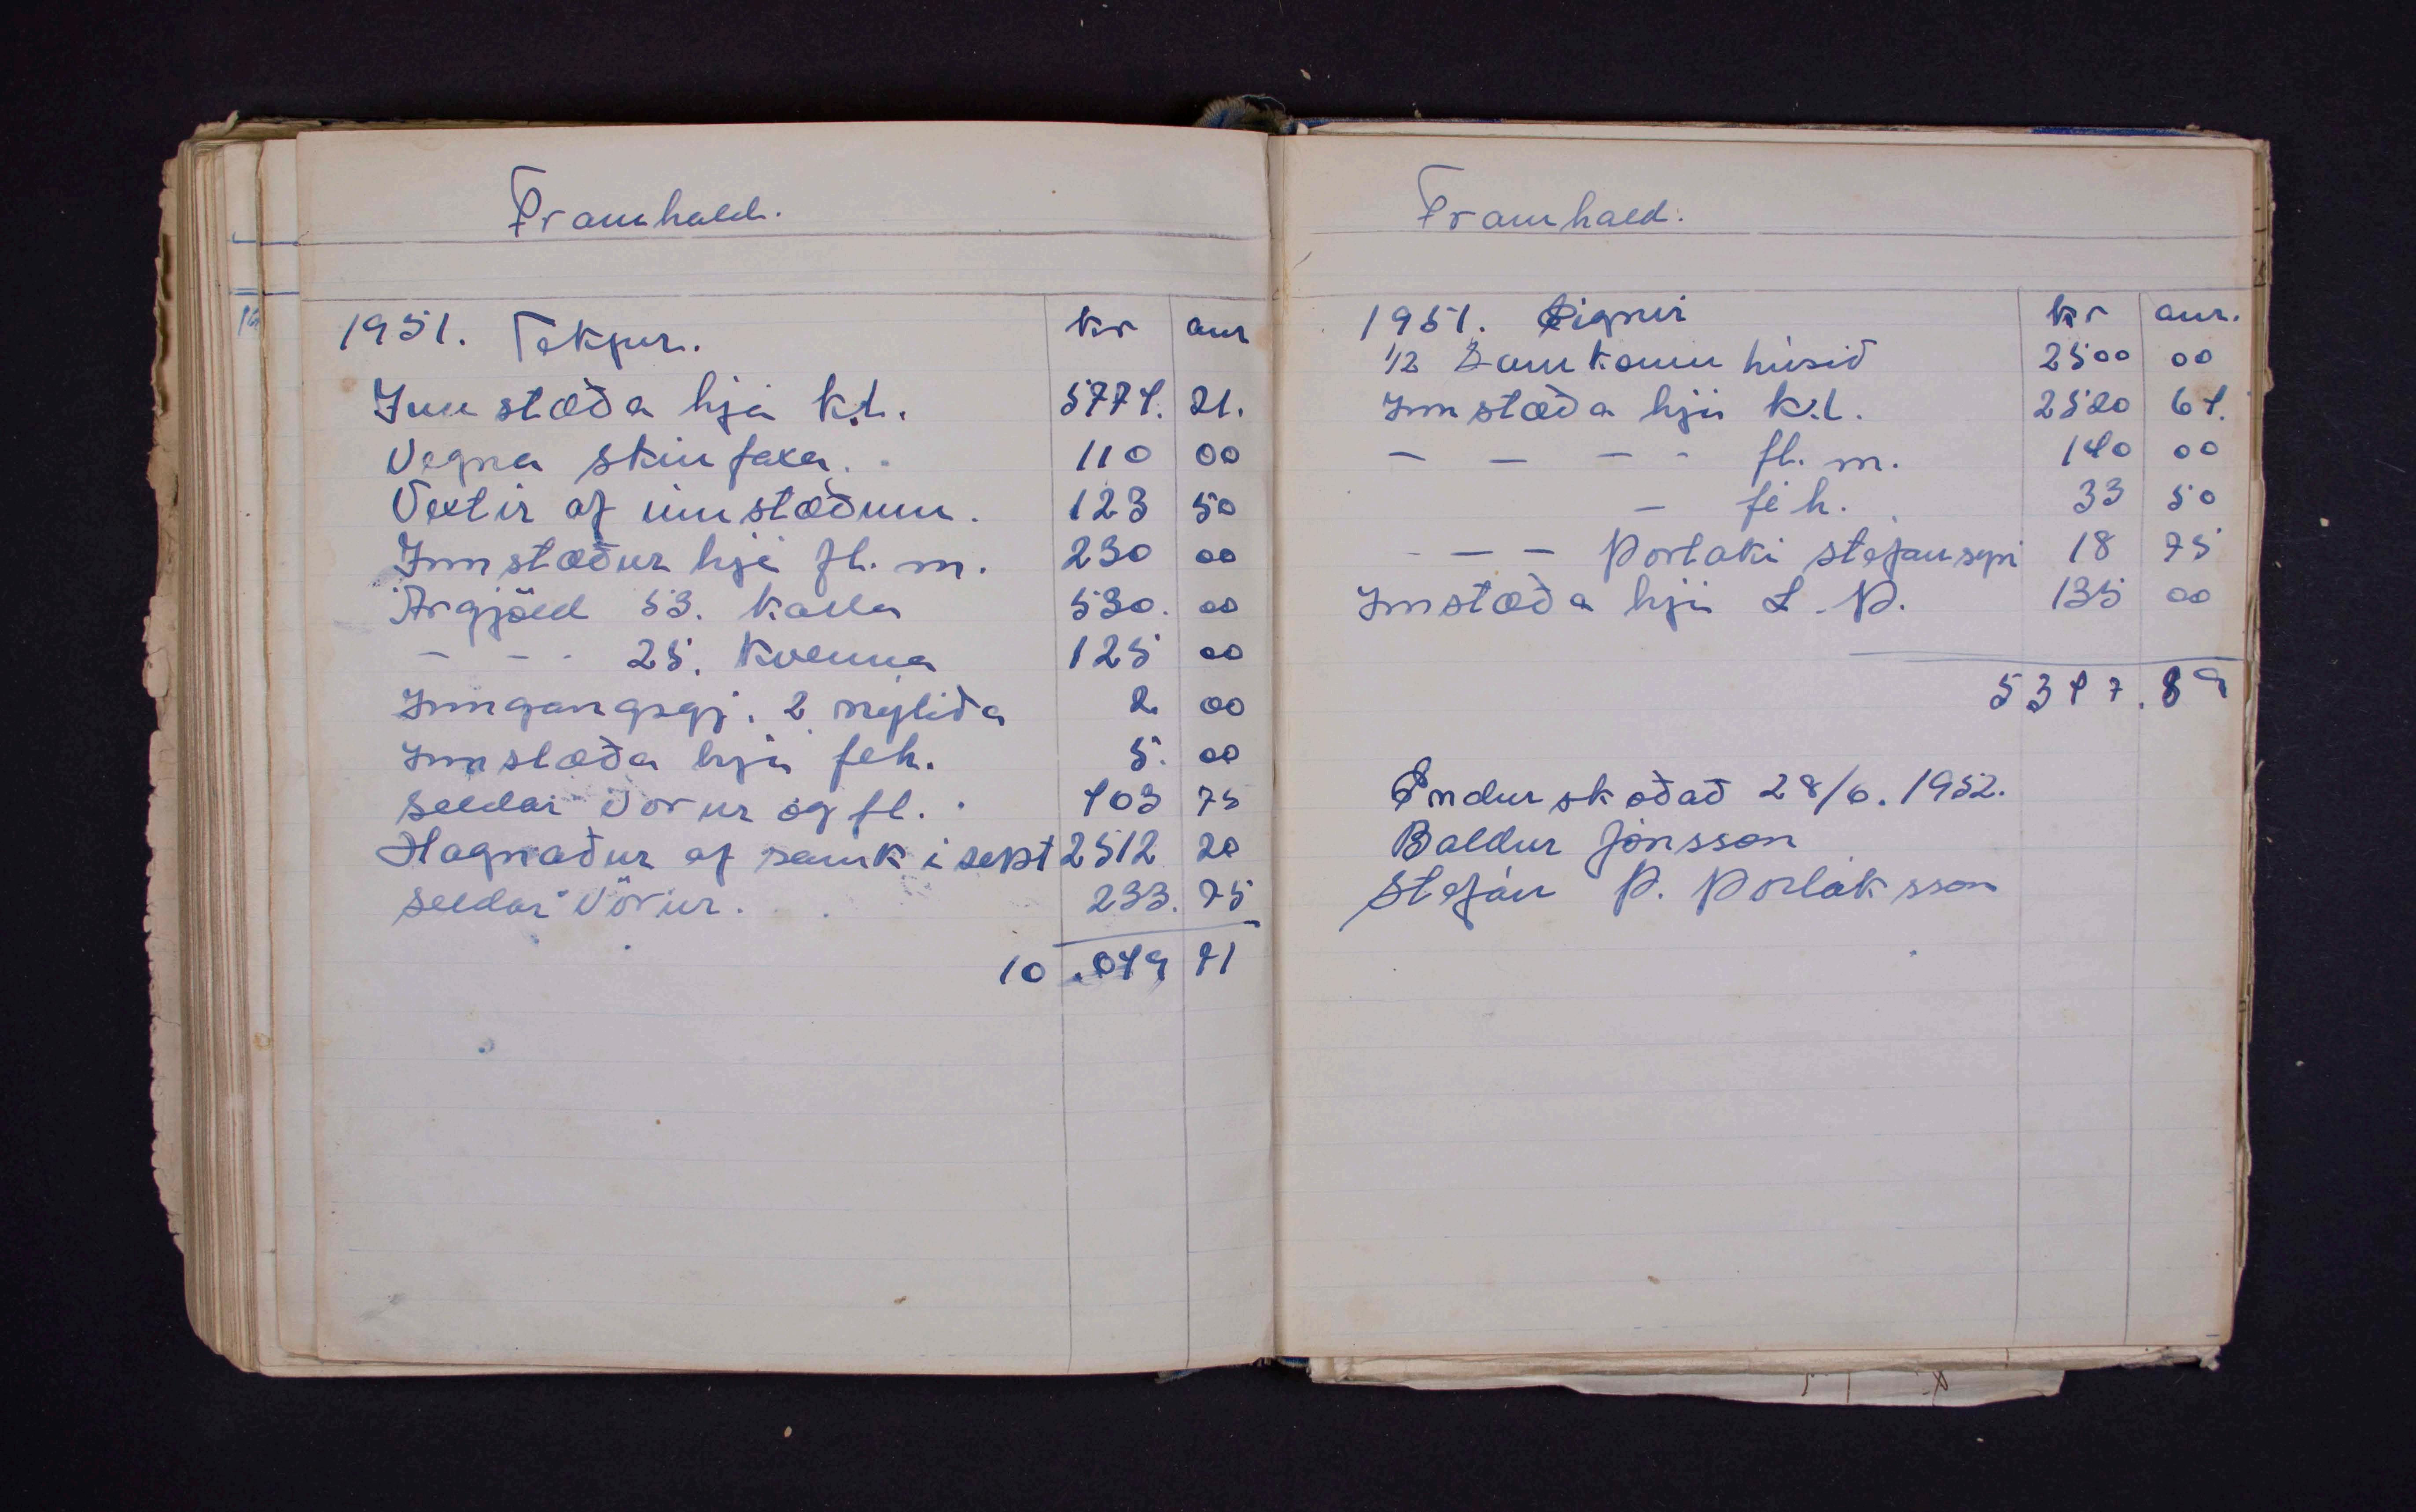 Framhald.
1951. Tekjur. kr aur
Innstæða hjá k.l. 5774. 21.
Vegna skinfaxa. 110 00
Vextir af innstæðum. 123 50
Innstæður hjá fl. m. 230 00
Árgjöld 53. karla 530. 00
- - - 25. kvenna 125 00
Inngangsgj. 2 nýliða 2 00
Innstæða hjá feh. 5. 00
Seldar vörur og fl. 403 75
Hagnaður af samk í sept 2512 20
Seldar vörur. 233. 75
10.049 41
Framhald.
1951. Eignir kr aur.
1/2 Samkomu húsið 2500 00
Innstæða hjá k.l. 2520 64.
- - - - fl. m. 140 00
- féh. 33 50
- - - Þorláki Stefánsyni 18 75
Innstæða hjá L. Þ. 135 00
5347.89
Endurskoðað 28/6. 1952.
Baldur Jónsson
Stefán Þ. Þorláksson